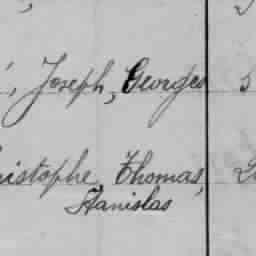 , Joseph, Georges 5
ristophe, Thomas,
Stanislas